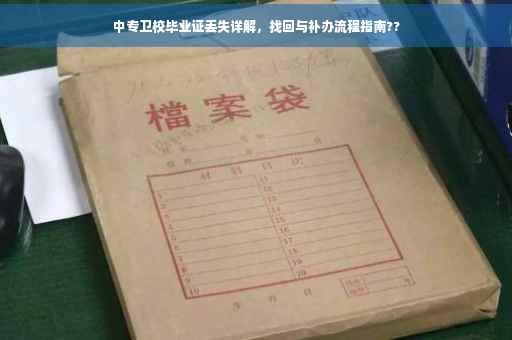 中专卫校毕业证丢失详解，找回与补办流程指南??
檔案袋
材料目次
1 11
2 12
3 13
4 14
5 15
6 16
7 17
8 18
9 19
10 20
年 月 日